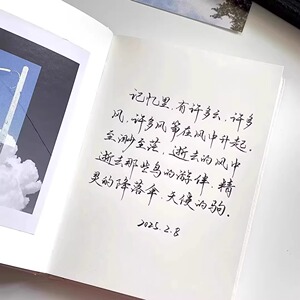 记忆里,有许多云,许多
风,许多风筝在风中升起,
至渺至茫,逝去的风中
逝去那些鸟的游伴,精
灵的降落伞,天使的驹.
2025.2.8